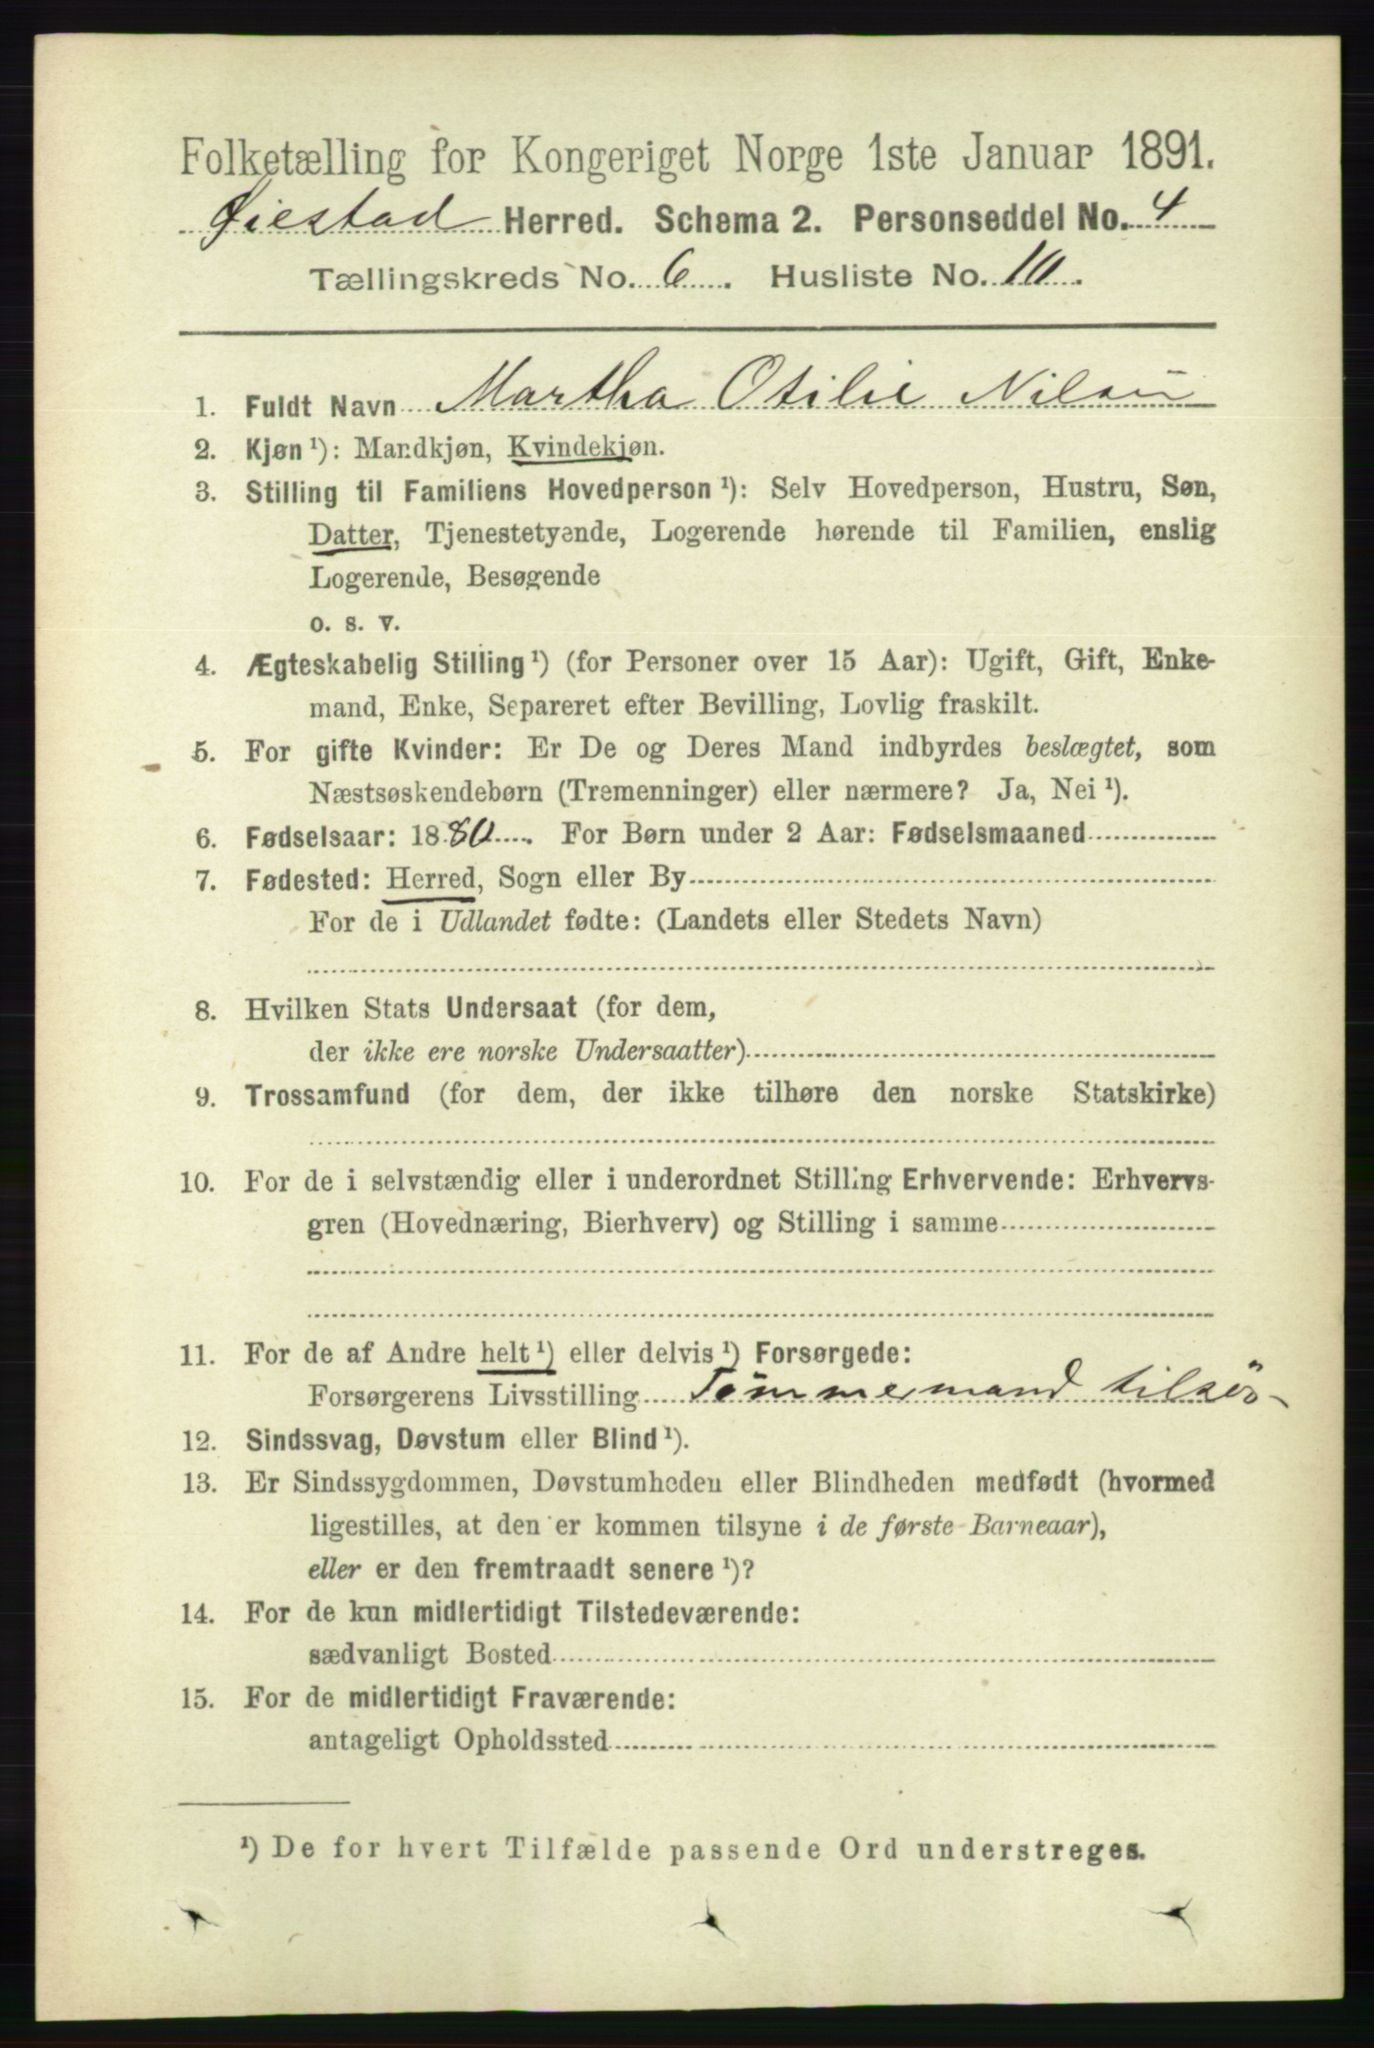 Folketælling for Kongeriget Norge 1ste Januar 1891.
Øiestad Herred. Schema 2. Personseddel No. 4
Tællingskreds No. 6. Husliste No. 10.
1. Fuldt Navn Martha Otilie Nilsen
2. Kjøn ¹): Mandkjøn, Kvindekjøn.
3. Stilling til Familiens Hovedperson ¹): Selv Hovedperson, Hustru, Søn,
Datter, Tjenestetyende, Logerende hørende til Familien, enslig
Logerende, Besøgende
o. s. v.
4. Ægteskabelig Stilling ¹) (for Personer over 15 Aar): Ugift, Gift, Enke-
mand, Enke, Separeret efter Bevilling, Lovlig fraskilt.
5. For gifte Kvinder: Er De og Deres Mand indbyrdes beslægtet, som
Næstsøskendebørn (Tremenninger) eller nærmere? Ja, Nei ¹).
6. Fødselsaar: 1880. For Børn under 2 Aar: Fødselsmaaned
7. Fødested: Herred, Sogn eller By
For de i Udlandet fødte: (Landets eller Stedets Navn)
8. Hvilken Stats Undersaat (for dem,
der ikke ere norske Undersaatter)
9. Trossamfund (for dem, der ikke tilhøre den norske Statskirke)
10. For de i selvstændig eller i underordnet Stilling Erhvervende: Erhvervs-
gren (Hovednæring, Bierhverv) og Stilling i samme
11. For de af Andre helt ¹) eller delvis ¹) Forsørgede:
Forsørgerens Livsstilling Tömmermand tilsös
12. Sindssvag, Døvstum eller Blind ¹).
13. Er Sindssygdommen, Døvstumheden eller Blindheden medfødt (hvormed
ligestilles, at den er kommen tilsyne i de første Barneaar),
eller er den fremtraadt senere ¹)?
14. For de kun midlertidigt Tilstedeværende:
sædvanligt Bosted
15. For de midlertidigt Fraværende:
antageligt Opholdssted
¹) De for hvert Tilfælde passende Ord understreges.